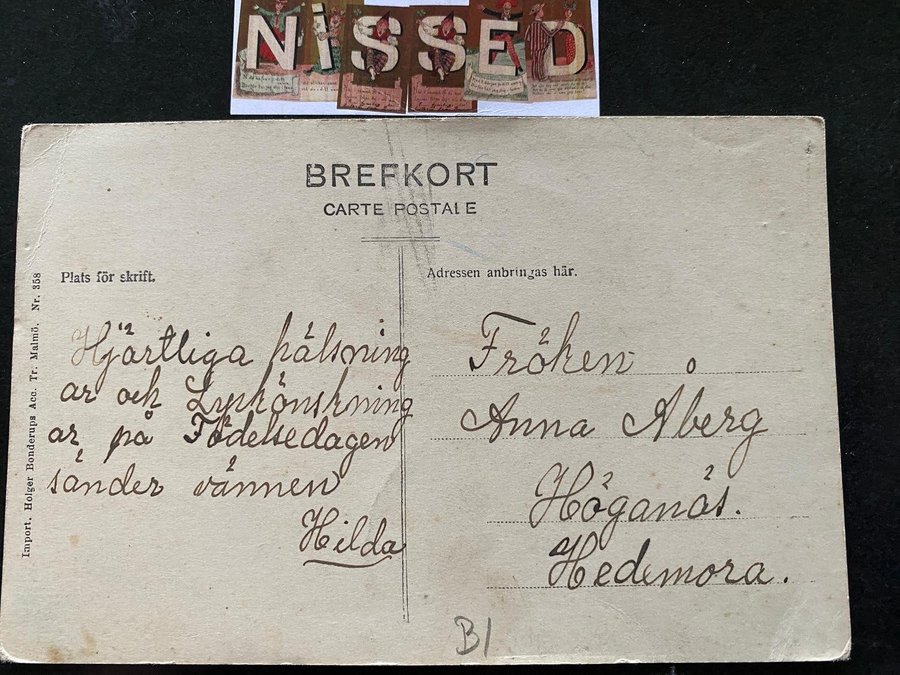 NISSED
BREFKORT
CARTE POSTALE
Plats för skrift.
Hjärtliga hälsning
ar och Lyckönskning
ar på Födelsedagen
sänder vännen
Hilda
Adressen anbringas här.
Fröken
Anna Åberg
Höganäs.
Hedemora.
Import. Holger Bonderups Acc. Tr. Malmö. Nr. 358
B1